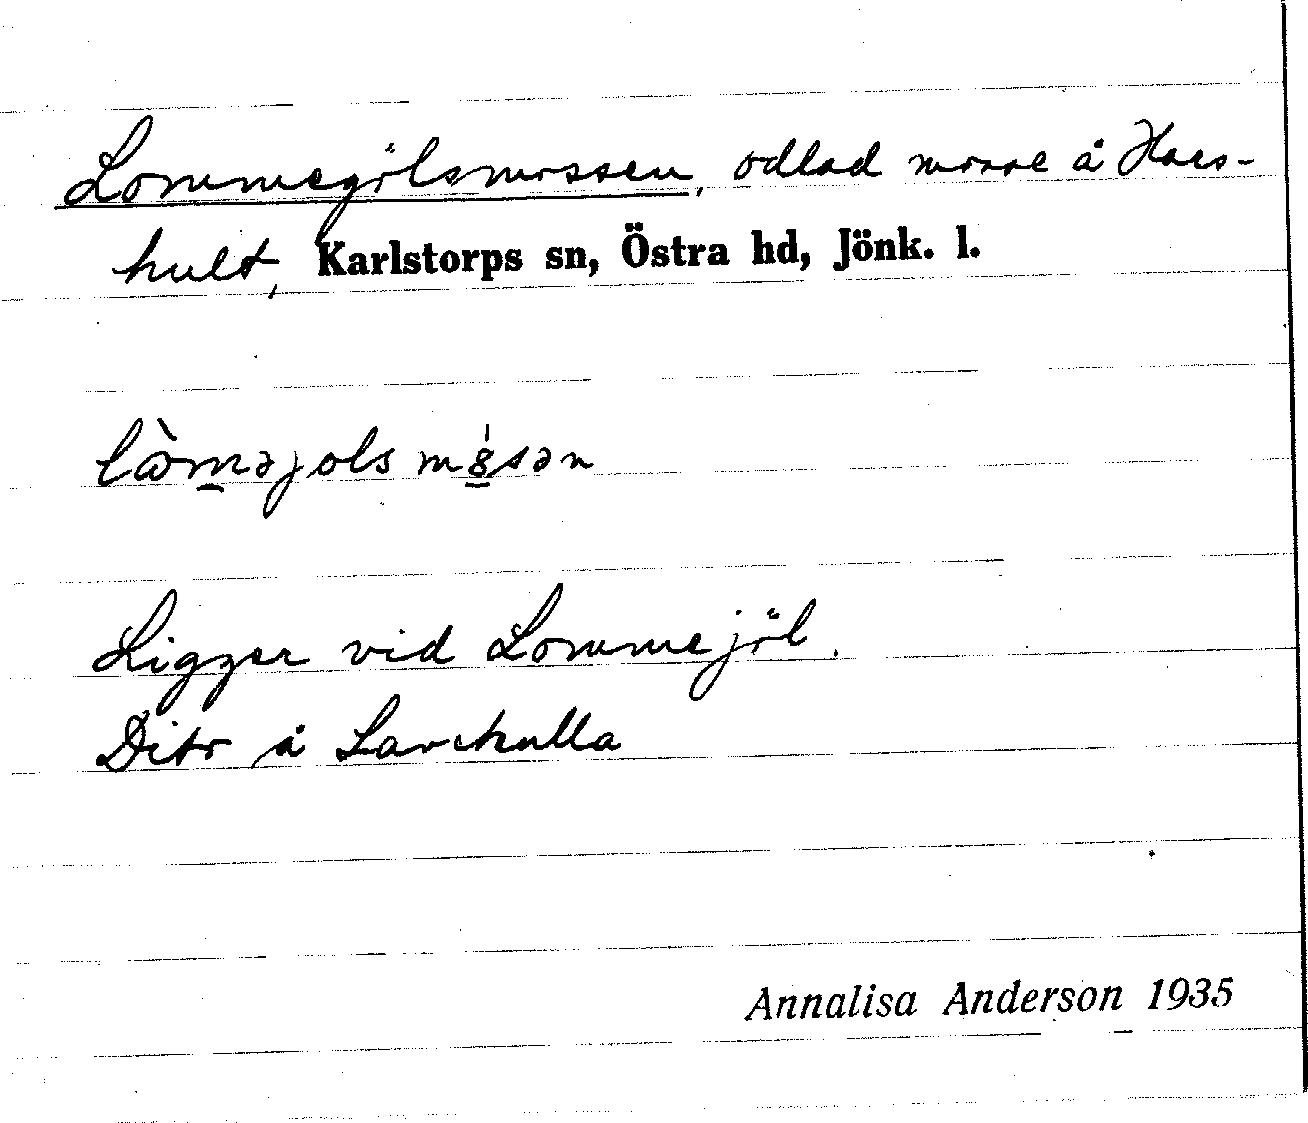 Lommegölsmossen, odlad mosse å Hars-
hult, Karlstorps sn, Östra hd, Jönk. l.
lòməjolsmósən
Ligger vid Lommejöl.
Dito å
Annalisa Anderson 1935